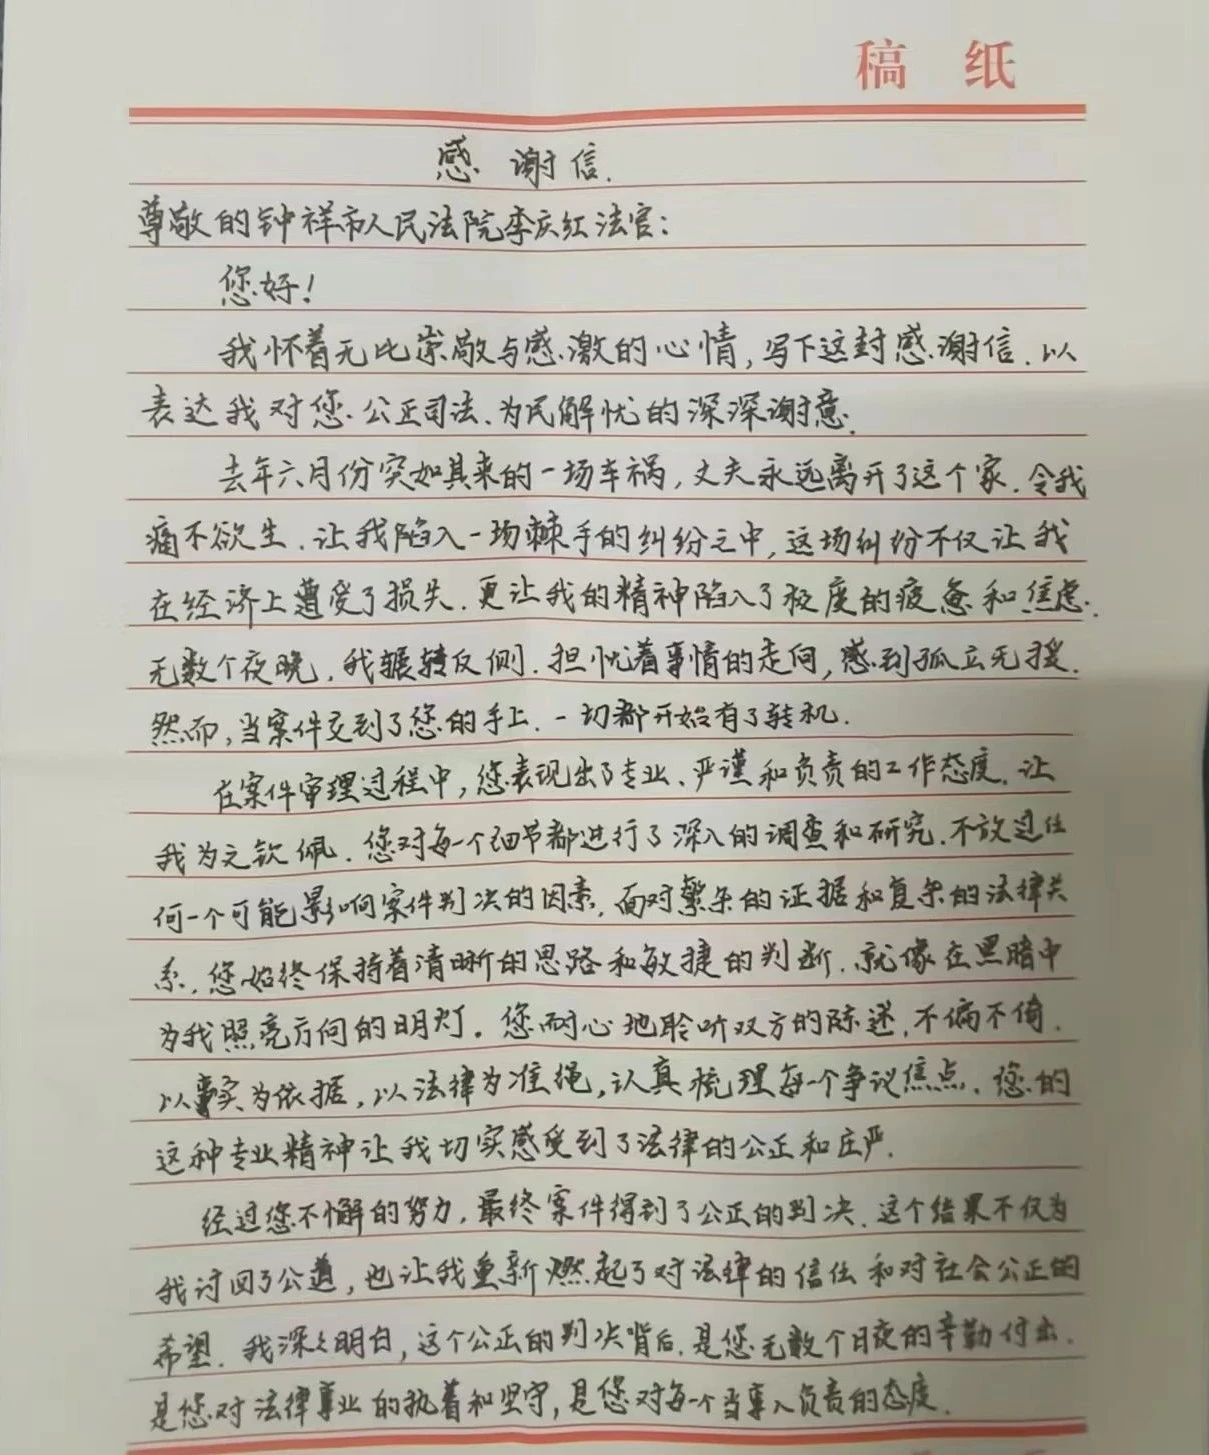 稿 纸
感谢信.
尊敬的钟祥市人民法院李庆红法官:
您好!
我怀着无比崇敬与感激的心情,写下这封感谢信.以
表达我对您公正司法、为民解忧的深深谢意.
去年六月份突如其来的一场车祸,丈夫永远离开了这个家.令我
痛不欲生.让我陷入一场棘手的纠纷之中,这场纠纷不仅让我
在经济上遭受了损失.更让我的精神陷入了极度的疲惫和焦虑.
无数个夜晚,我辗转反侧.担忧着事情的走向,感到孤立无援.
然而,当案件交到了您的手上.一切都开始有了转机.
在案件审理过程中,您表现出了专业、严谨和负责的工作态度.让
我为之钦佩.您对每一个细节都进行了深入的调查和研究.不放过任
何一个可能影响案件判决的因素.面对繁杂的证据和复杂的法律关
系.您始终保持着清晰的思路和敏捷的判断.就像在黑暗中
为我照亮方向的明灯。您耐心地聆听双方的陈述.不偏不倚.
以事实为依据,以法律为准绳,认真梳理每一个争议焦点.您的
这种专业精神让我切实感受到了法律的公正和庄严.
经过您不懈的努力.最终案件得到了公正的判决.这个结果不仅为
我讨回了公道,也让我重新燃起了对法律的信任和对社会公正的
希望.我深深明白,这个公正的判决背后.是您无数个日夜的辛勤付出.
是您对法律事业的执着和坚守,是您对每个当事人负责的态度.